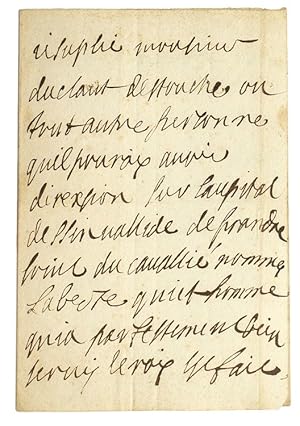 ie suplie monsieur
duclaut destouche ou
tout autre personne
quil pouroit avoir
direxsion sur laupital
des Sinvallide de prandre
soint du cavallié nommé
Labecte quiet homme
quia parfestement bien
servis le roy ge fait